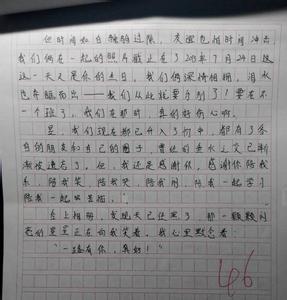 但时间如白驹过隙，友谊也相时间冲击
我们俩在一起的照片截止在了2015年7月24日这
这一天又是你的生日，我们俩深情相拥，泪水
也夺眶而出——我们从此就要分别了！要在不
一个班了，我们在那时，真的好伤心啊。
是，我们现在都已升入了初中，都有了各
自的朋友和自己的圈子，曾经的垂水之交已渐
渐被遗忘了。但，我还是感谢你，感谢你陪我
乐，陪我哭，陪我笑，陪我闹，陪我一起学习
陪我一起
合上相册，发现天已经黑了，那一颗颗闪
亮的星星正在向我笑着，我心里默念着：
“一路有你，真好！”
46